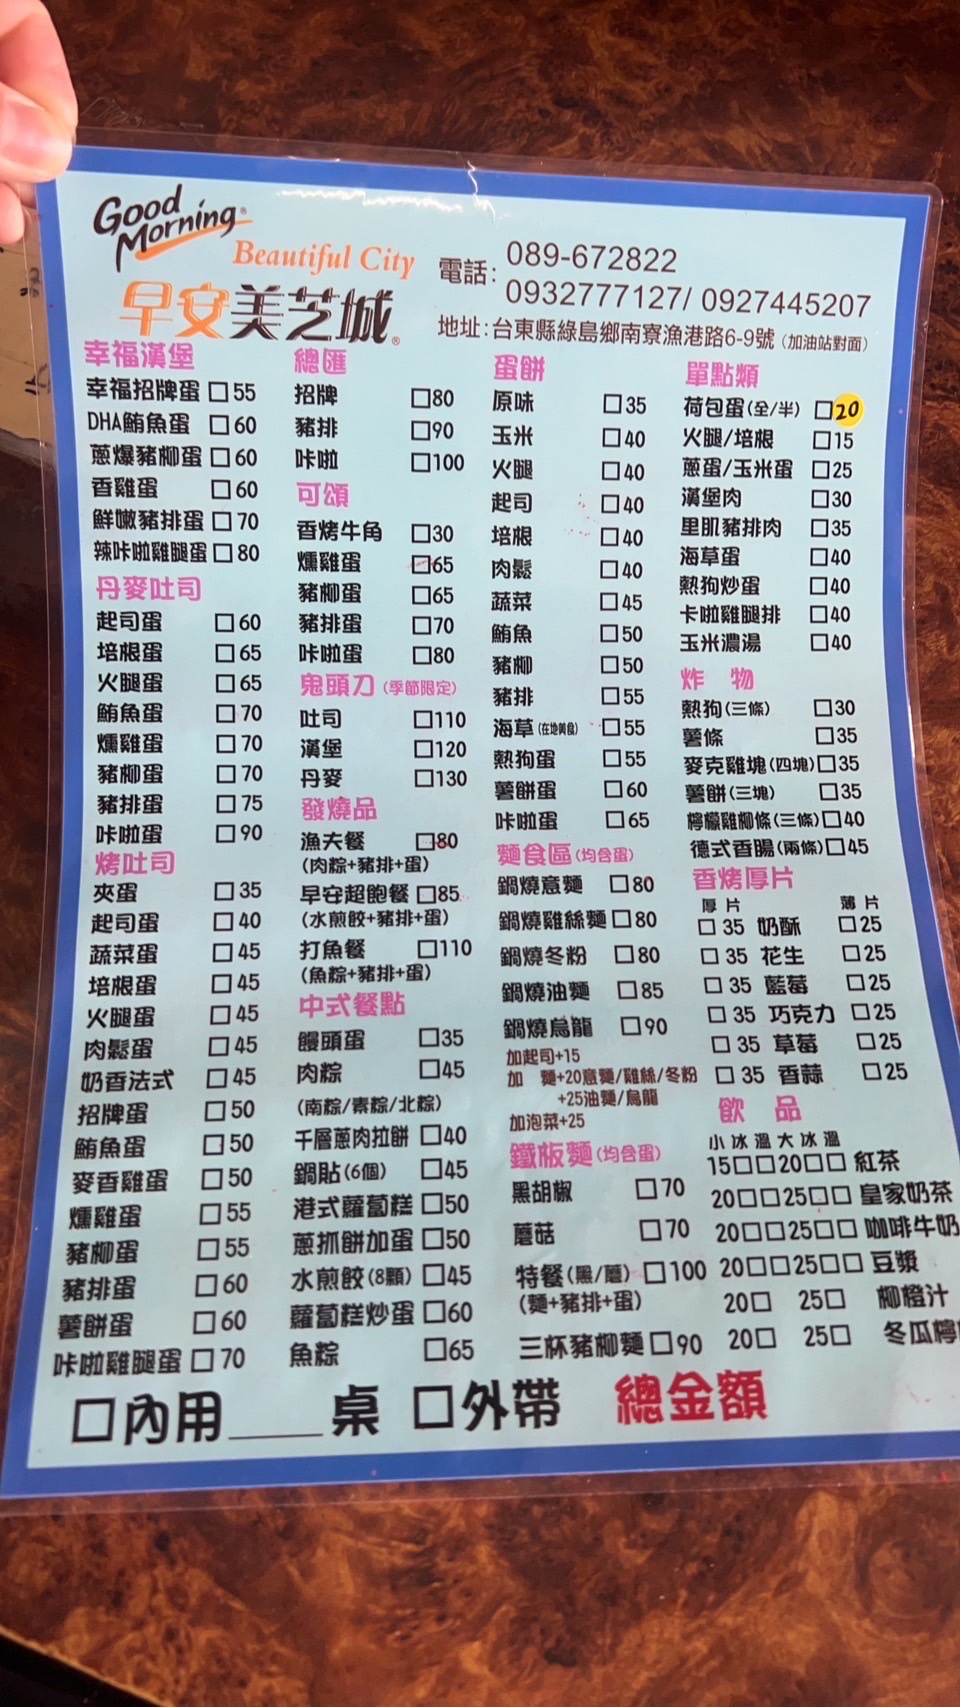 Good Morning
Beautiful City
早安美芝城
電話: 089-672822
0932777127/ 0927445207
地址:台東縣綠島鄉南寮漁港路6-9號 (加油站對面)
幸福漢堡
幸福招牌蛋 □ 55
DHA鮪魚蛋 □ 60
蔥爆豬柳蛋 □ 60
香雞蛋 □ 60
鮮嫩豬排蛋 □ 70
辣咔啦雞腿蛋 □ 80
丹麥吐司
起司蛋 □ 60
培根蛋 □ 65
火腿蛋 □ 65
鮪魚蛋 □ 70
燻雞蛋 □ 70
豬柳蛋 □ 70
豬排蛋 □ 75
咔啦蛋 □ 90
烤吐司
夾蛋 □ 35
起司蛋 □ 40
蔬菜蛋 □ 45
培根蛋 □ 45
火腿蛋 □ 45
肉鬆蛋 □ 45
奶香法式 □ 45
招牌蛋 □ 50
鮪魚蛋 □ 50
麥香雞蛋 □ 50
燻雞蛋 □ 55
豬柳蛋 □ 55
豬排蛋 □ 60
薯餅蛋 □ 60
咔啦雞腿蛋 □ 70
總匯
招牌 □80
豬排 □90
咔啦 □100
可頌
香烤牛角 □30
燻雞蛋 □65
豬柳蛋 □65
豬排蛋 □70
咔啦蛋 □80
鬼頭刀 (季節限定)
吐司 □110
漢堡 □120
丹麥 □130
發燒品
漁夫餐 □80
(肉粽+豬排+蛋)
早安超飽餐 □85
(水煎餃+豬排+蛋)
打魚餐 □110
(魚粽+豬排+蛋)
中式餐點
饅頭蛋 □35
肉粽 □45
(南粽/素粽/北粽)
千層蔥肉拉餅 □40
鍋貼 (6個) □45
港式蘿蔔糕 □50
蔥抓餅加蛋 □50
水煎餃 (8顆) □45
蘿蔔糕炒蛋 □60
魚粽 □65
蛋餅
原味 □35
玉米 □40
火腿 □40
起司 □40
培根 □40
肉鬆 □40
蔬菜 □45
鮪魚 □50
豬柳 □50
豬排 □55
海草 (在地美食) □55
熱狗蛋 □55
薯餅蛋 □60
咔啦蛋 □65
麵食區 (均含蛋)
鍋燒意麵 □80
鍋燒雞絲麵 □80
鍋燒冬粉 □80
鍋燒油麵 □85
鍋燒烏龍 □90
加起司+15
加 麵+20意麵/雞絲/冬粉
+25油麵/烏龍
加泡菜+25
鐵板麵 (均含蛋)
黑胡椒 □70
蘑菇 □70
特餐 (黑/蘑) □100
(麵+豬排+蛋)
三杯豬柳麵 □90
單點類
荷包蛋 (全/半) □20
火腿/培根 □15
蔥蛋/玉米蛋 □25
漢堡肉 □30
里肌豬排肉 □35
海草蛋 □40
熱狗炒蛋 □40
卡啦雞腿排 □40
玉米濃湯 □40
炸 物
熱狗 (三條) □30
薯條 □35
麥克雞塊 (四塊) □35
薯餅 (三塊) □35
檸檬雞柳條 (三條) □40
德式香腸 (兩條) □45
香烤厚片
厚片 薄片
□ 35 奶酥 □25
□ 35 花生 □25
□ 35 藍莓 □25
□ 35 巧克力 □25
□ 35 草莓 □25
□ 35 香蒜 □25
飲 品
小 冰 溫 大 冰 溫
15□□20□□ 紅茶
20□□25□□ 皇家奶茶
20□□25□□ 咖啡牛奶
20□□25□□ 豆漿
20□ 25□ 柳橙汁
20□ 25□ 冬瓜檸
□內用____桌 □外帶 總金額